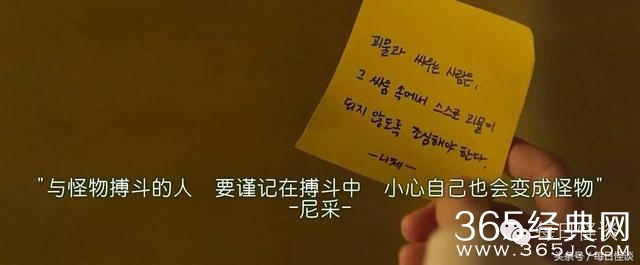 괴물과 싸우는 사람은,
그 싸움 속에서 스스로 괴물이
되지 않도록 조심해야 한다.
-니체-
"与怪物搏斗的人 要谨记在搏斗中 小心自己也会变成怪物"
-尼采-
365经典网
每日怪谈
WWW.365J.COM
头条号/每日怪谈